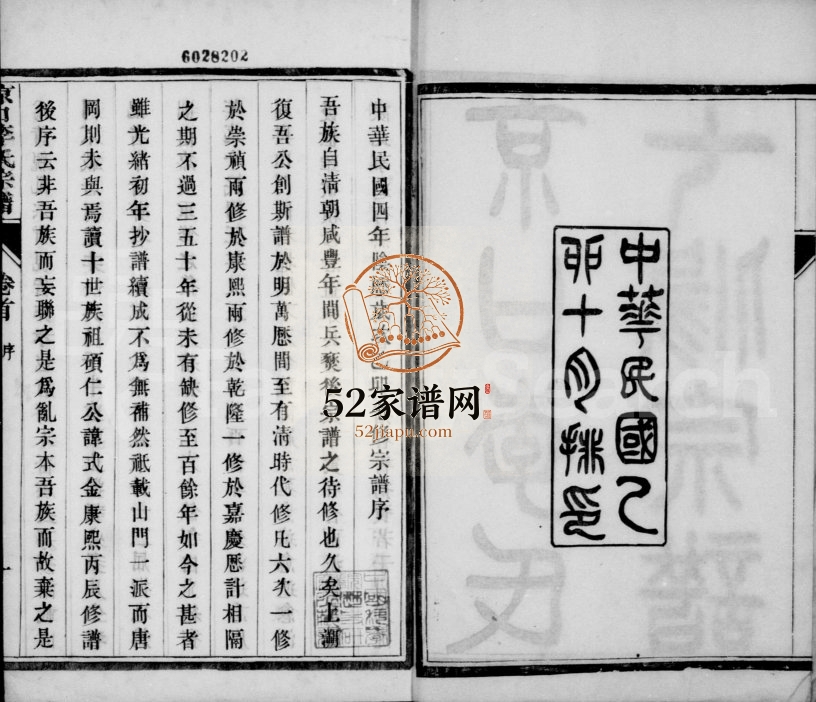 中華民國乙
卯十月排印
6028202
中華民國四年陰歷歲乙卯修宗譜序
吾族自清朝咸豐年間兵燹後宗譜之待修也久矣上溯
復吾公創斯譜於明萬歷間至有清時代修凡六次一修
於崇禎兩修於康熙兩修於乾隆一修於嘉慶歷計相隔
之期不過三五十年從未有缺修至百餘年如今之甚者
雖光緒初年抄譜續成不為無補然祗載山門一派而唐
岡則未與焉讀十世族祖碩仁公諱式金康熙丙辰修譜
後序云非吾族而妄聯之是為亂宗本吾族而故棄之是
京口李氏宗譜
卷首
序
一
52家谱网
52jiapu.com